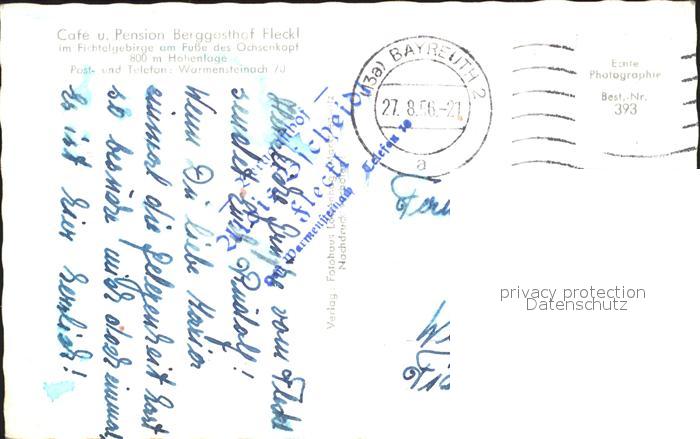 Café u. Pension Berggasthof Fleckl
im Fichtelgebirge am Fuße des Ochsenkopf
800 m Höhenlage
Post- und Telefon: Warmensteinach /J
(13a) BAYREUTH 2
27. 8.56.-21
a
Echte
Photographie
Best.-Nr.
393
Herzliche Grüße vom Fleckl
sendet Euch Rudolf!
Wenn Du liebe Maria
einmal die Gelegenheit hast
so besuche mich doch einmal,
es ist hier herrlich!
Fleckl
Warmensteinach
Verlag: Fotohaus
Nachdruck
privacy protection
Datenschutz